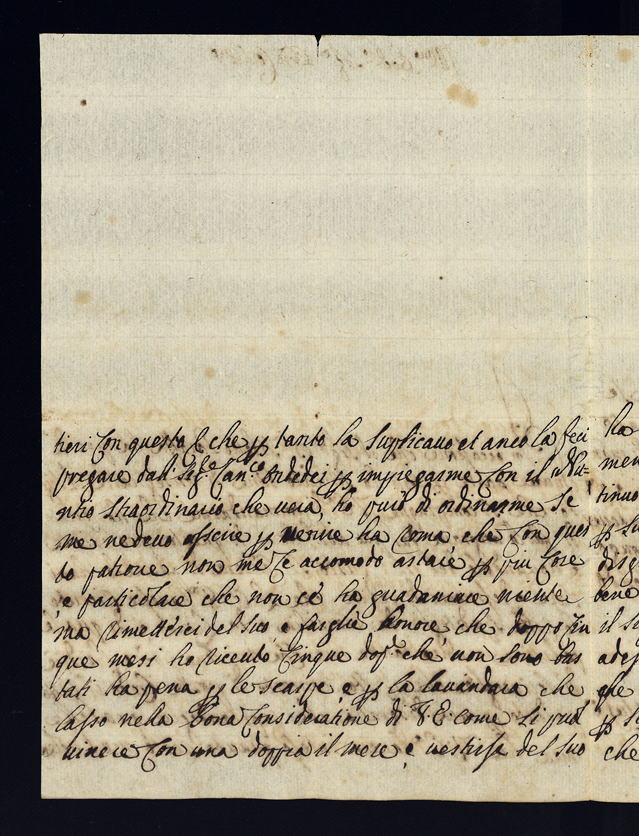 tieri Con questo E che p tanto la Suplicauo et anco la feci
pregare dall Sig.re Can.co p impiegarme Con il Nu-
ntio straordinario che uera, ho puro di ordinarme Se
me ne deuo uscire p uenire ha Roma che Con ques
to patrone non me Ce accomodo a stare p piu Cose
e particolare che non cé ha guadaniare niente
ma Rimetterci del Suo e farglie honore che doppo Cin
que mesi ho riceuto Cinque dop.e che non Sono bas
tati ha pena p le scarpe e p la lauandara che
lasso nella Bona Consideratione di V. E. come Si può
uiuere Con una doppia il mese e uestirse del Suo
ha
men
tinuo
p su
disg
bene
il Su
ades
che
p S
che